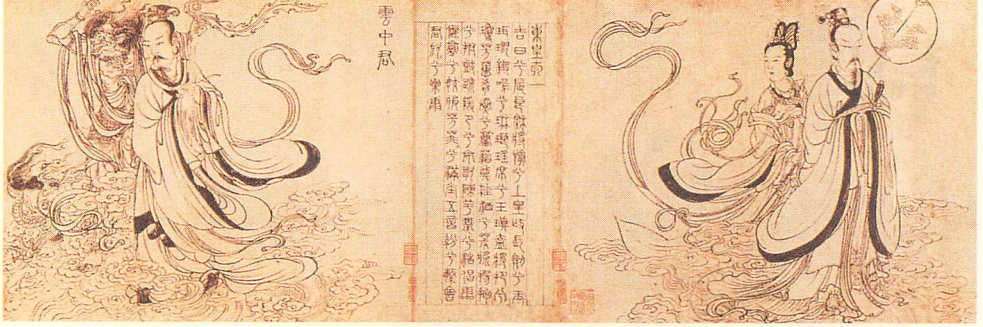 東皇太一
吉日兮辰良穆將愉兮上皇撫長劍兮玉
珥璆鏘鳴兮琳琅瑤席兮玉瑱盍將把兮
瓊芳蕙肴蒸兮蘭藉奠桂酒兮椒漿揚枹
兮拊鼓疏緩節兮安歌陳竽瑟兮浩倡靈
偃蹇兮姣服芳菲兮滿堂五音紛兮繁會
君欣兮樂康
雲中君